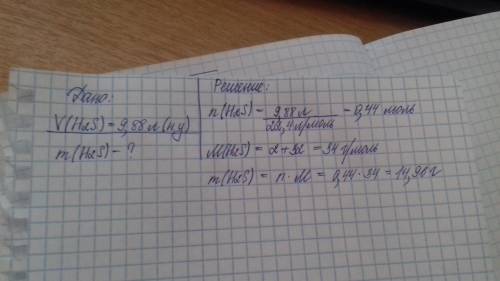 Дано:
V(H2S) = 9,88 л (н.у)
m(H2S) - ?
Решение:
n(H2S) = 9,88 л / 22,4 л/моль = 0,44 моль
M(H2S) = 2+32 = 34 г/моль
m(H2S) = n · M = 0,44 · 34 = 14,96 г